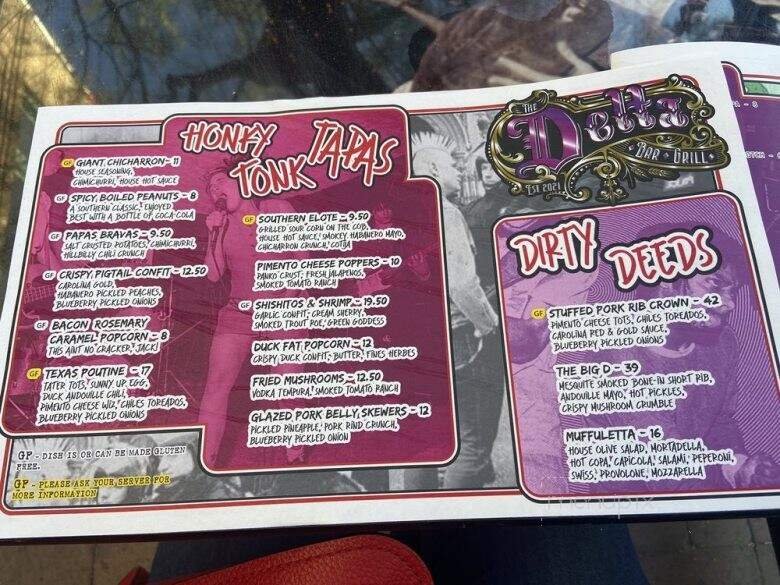 HONKY
TONK TAPAS
GF GIANT CHICHARRON - 11
HOUSE SEASONING,
CHIMICHURRI, HOUSE HOT SAUCE
GF SPICY, BOILED PEANUTS - 8
A SOUTHERN CLASSIC, ENJOYED
BEST WITH A BOTTLE OF COCA-COLA
GF PAPAS BRAVAS - 9.50
SALT CRUSTED POTATOES, CHIMICHURRI,
HILLBILLY CHILI CRUNCH
GF CRISPY, PIGTAIL CONFIT - 12.50
CAROLINA GOLD,
HABANERO PICKLED PEACHES,
BLUEBERRY PICKLED ONIONS
GF BACON ROSEMARY
CARAMEL POPCORN - 8
THIS AIN'T NO CRACKER, JACK!
GF TEXAS POUTINE - 17
TATER TOTS, SUNNY UP EGG,
DUCK ANDOUILLE CHILI,
PIMENTO CHEESE WIZ, CHILES TOREADOS,
BLUEBERRY PICKLED ONIONS
GF - DISH IS OR CAN BE MADE GLUTEN
FREE.
GF - PLEASE ASK YOUR SERVER FOR
MORE INFORMATION
GF SOUTHERN ELOTE - 9.50
GRILLED SOUR CORN ON THE COB,
HOUSE HOT SAUCE, SMOKEY HABANERO MAYO,
CHICHARRON CRUNCH, COTIJA
PIMENTO CHEESE POPPERS - 10
PANKO CRUST, FRESH JALAPENOS,
SMOKED TOMATO RANCH
GF SHISHITOS & SHRIMP - 19.50
GARLIC CONFIT, CREAM SHERRY,
SMOKED TROUT ROE, GREEN GODDESS
DUCK FAT POPCORN - 12
CRISPY DUCK CONFIT, BUTTER, FINES HERBES
FRIED MUSHROOMS - 12.50
VODKA TEMPURA, SMOKED TOMATO RANCH
GLAZED PORK BELLY SKEWERS - 12
PICKLED PINEAPPLE, PORK RIND CRUNCH,
BLUEBERRY PICKLED ONION
THE
Dells
BAR & GRILL
EST 2021
DIRTY
DEEDS
GF STUFFED PORK RIB CROWN - 42
PIMENTO CHEESE TOTS, CHILES TOREADOS,
CAROLINA RED & GOLD SAUCE,
BLUEBERRY PICKLED ONIONS
THE BIG D - 39
MESQUITE SMOKED BONE-IN SHORT RIB,
ANDOUILLE MAYO, HOT PICKLES,
CRISPY MUSHROOM CRUMBLE
MUFFULETTA - 16
HOUSE OLIVE SALAD, MORTADELLA,
HOT COPA, CAPICOLA, SALAMI, PEPERONI,
SWISS, PROVOLONE, MOZZARELLA